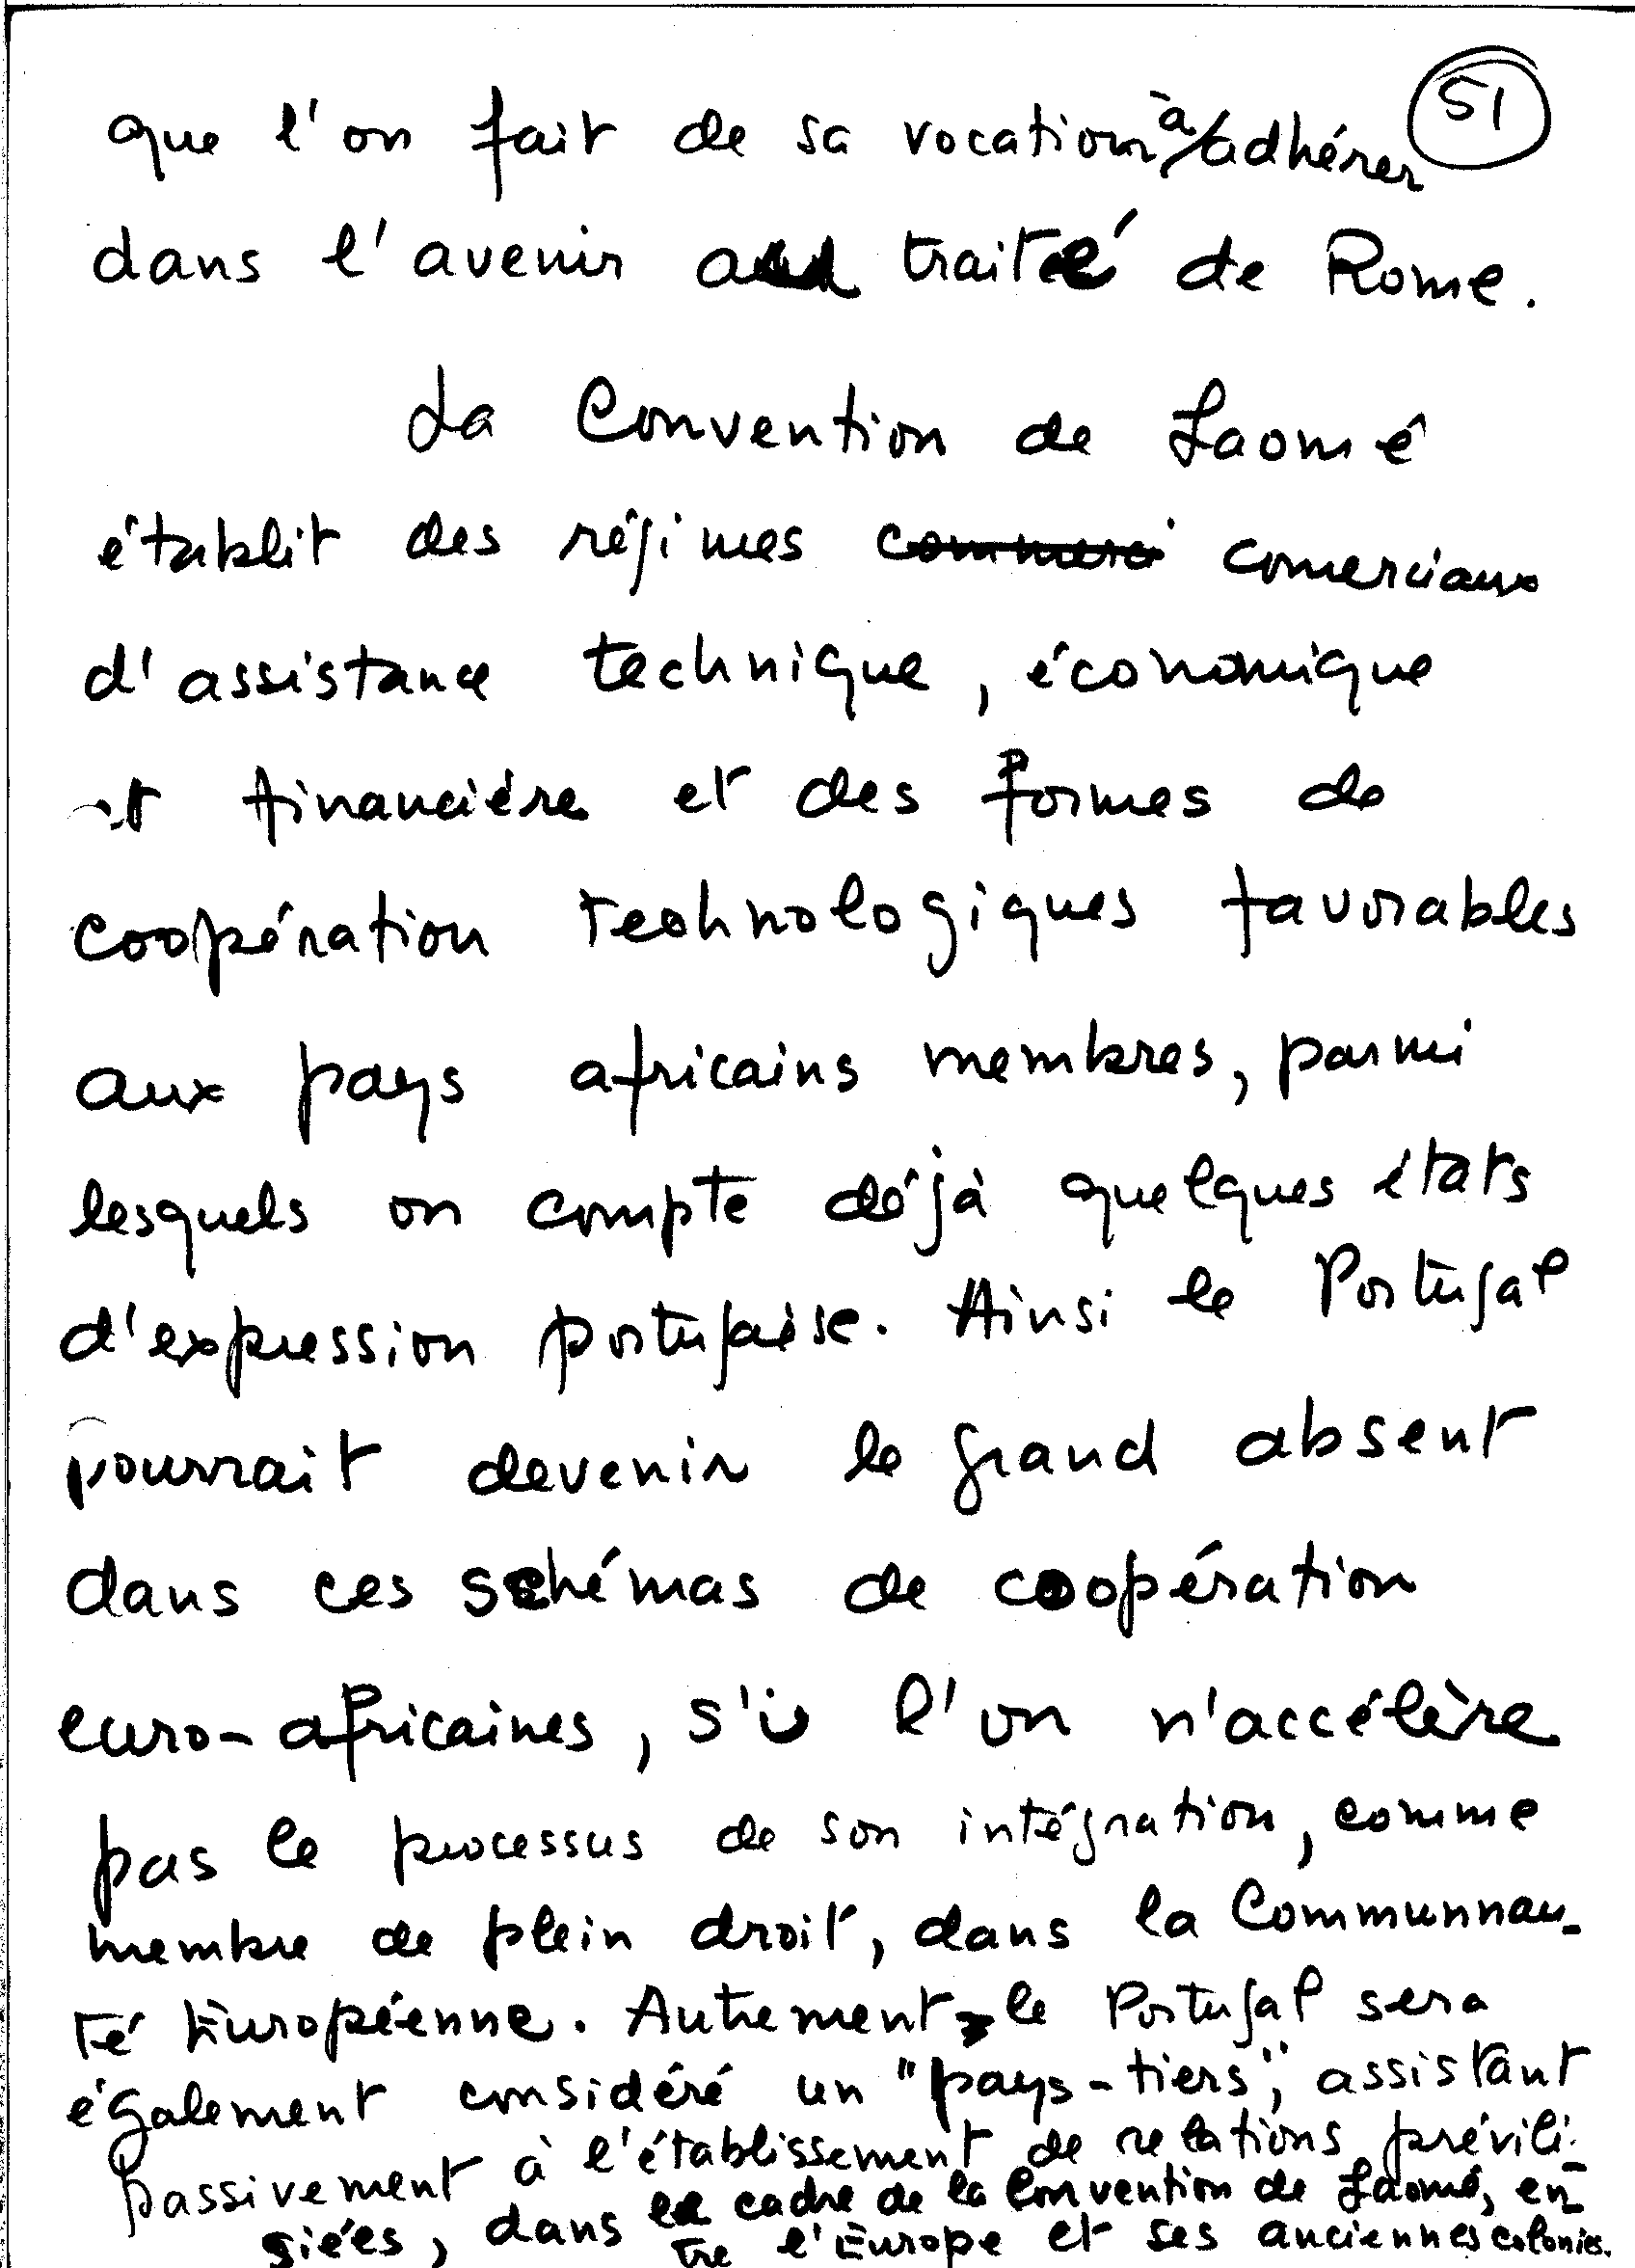 51
que l'on fait de sa vocation à adhérer
dans l'avenir au traité de Rome.
La Convention de Laomé
établit des régimes commerci comerciaux
d'assistance technique, économique
et financiére et des formes de
coopération technologiques favorables
aux pays africains membres, parmi
lesquels on compte déjà quelques états
d'expression portugaise. Ainsi le Portugal
pourrait devenir le grand absent
dans ces schémas de coopération
euro-africaines, s'i l'on n'accélère
pas le processus de son intégration, comme
membre de plein droit, dans la Communnau-
té Européenne. Autrement, le Portugal sera
également considéré un "pays-tiers", assistant
passivement à l'établissement de relations prévili-
giées, dans le cadre de la Convention de Laomé, en-
tre l'Europe et ses anciennes colonies.